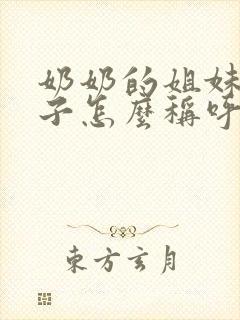 奶奶的姐妹
子怎麼稱呼
東方玄月